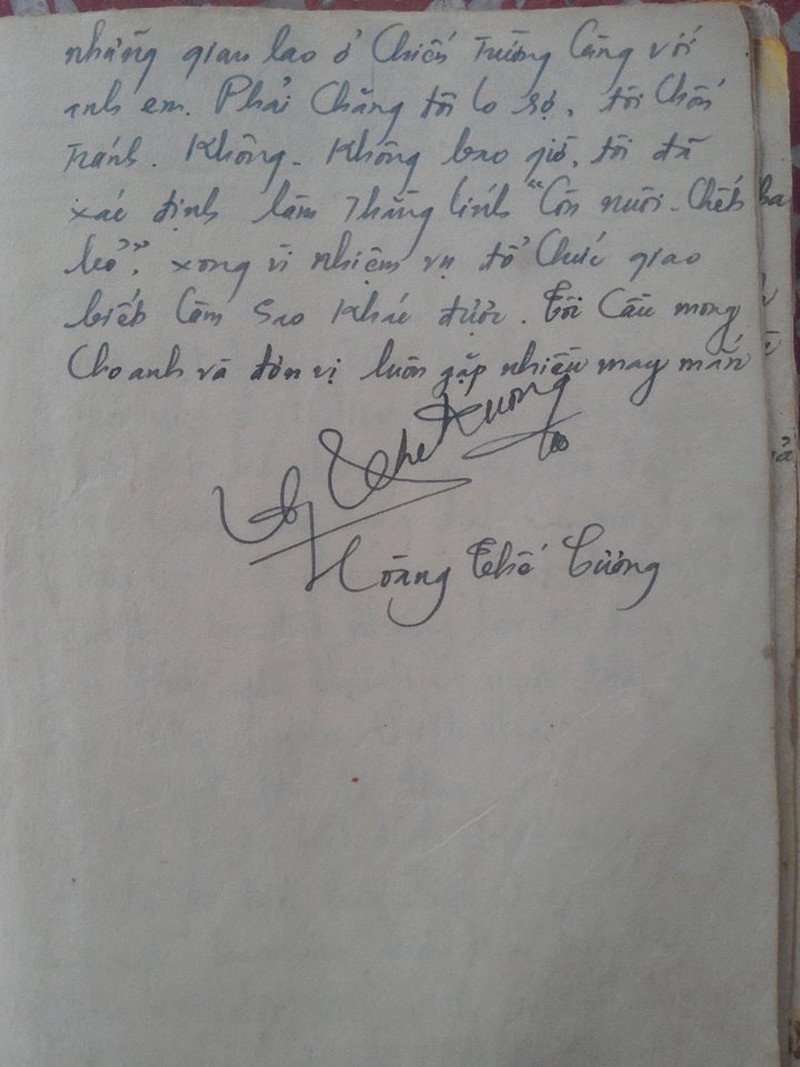 những gian lao ở Chiến Trường Cùng với
anh em. Phải Chăng tôi lo sợ, tôi Chốn
Tránh. Không. Không bao giờ, tôi đã
xác định làm Thằng lính "Còn nuôi - Chết
bỏ", xong vì nhiệm vụ tổ Chức giao
biết làm sao Khác được. Tôi Cầu mong
Cho anh và đơn vị luôn gặp nhiều may mắn
Hoàng Thế Cường